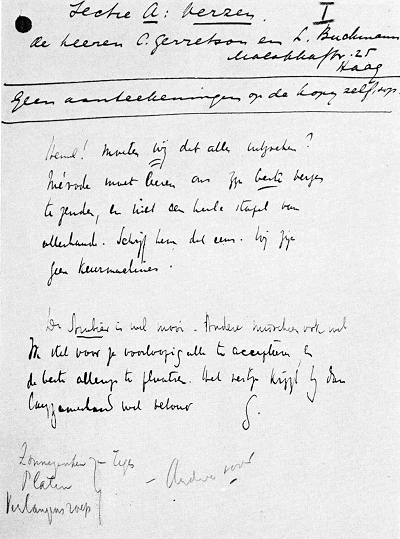 Sectie A: Verzen. I
de heeren C. Gerretson en L. Buckmann
25
Haag
Geen aanteekeningen op de kopy zelf, svp.
Hemel! moeten wij dat alles uitzoeken?
Mérode moet leeren ons zijn beste verzen
te zenden, en niet een heele stapel van
allerhand. Schrijf hem dat eens. Wij zijn
geen keurmachines.
De Spubier is wel mooi. Andere misschien ook wel
Ik stel voor je voorloopig alles te accepteren, en
de beste allengs te plaatsen. Het restje krijgt hij dan
langzamerhand wel retour G.
Platen
Verlangensroep
- Andere